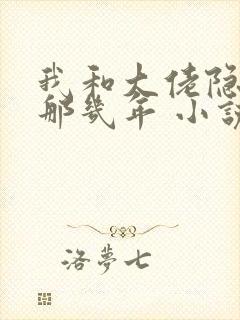 我和大佬隐
那几年 小说
洛梦七